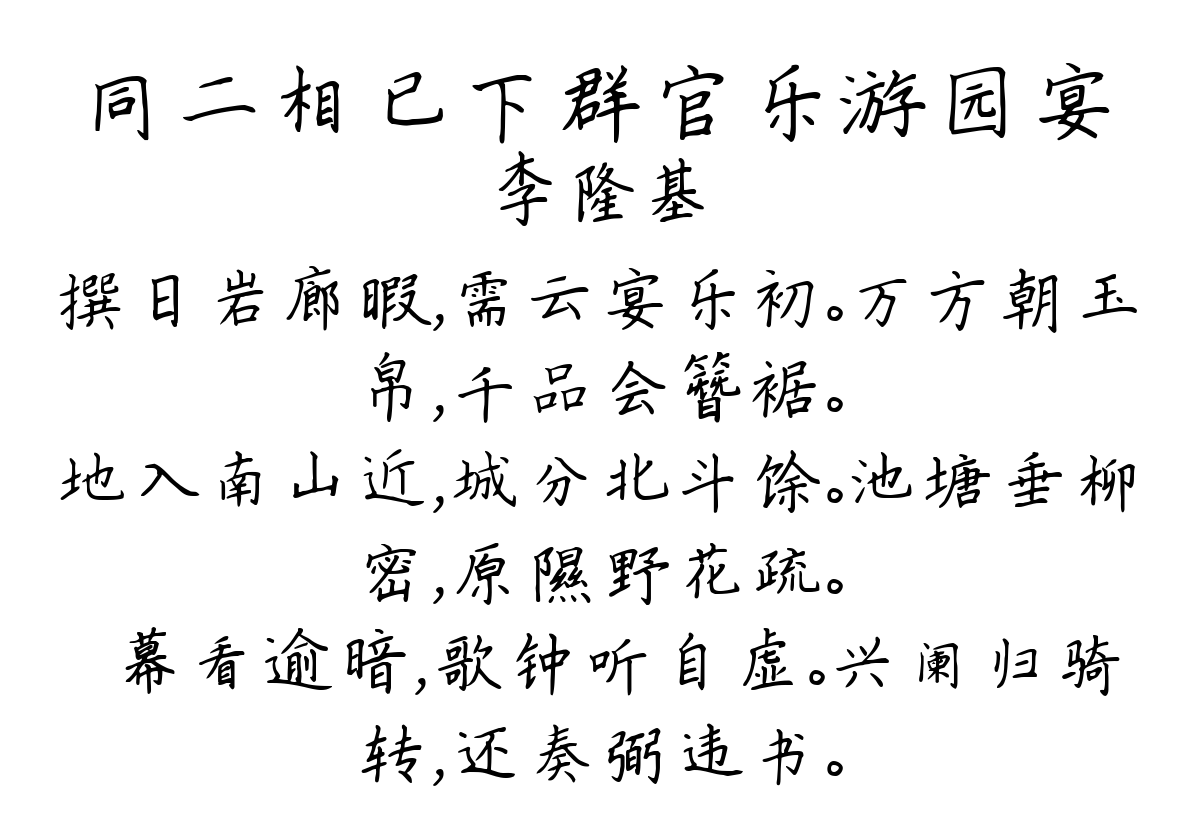 同二相已下群官乐游园宴
李隆基
撰日岩廊暇,需云宴乐初。万方朝玉
帛,千品会簪裾。
地入南山近,城分北斗馀。池塘垂柳
密,原隰野花疏。
幕看逾暗,歌钟听自虚。兴阑归骑
转,还奏弼违书。